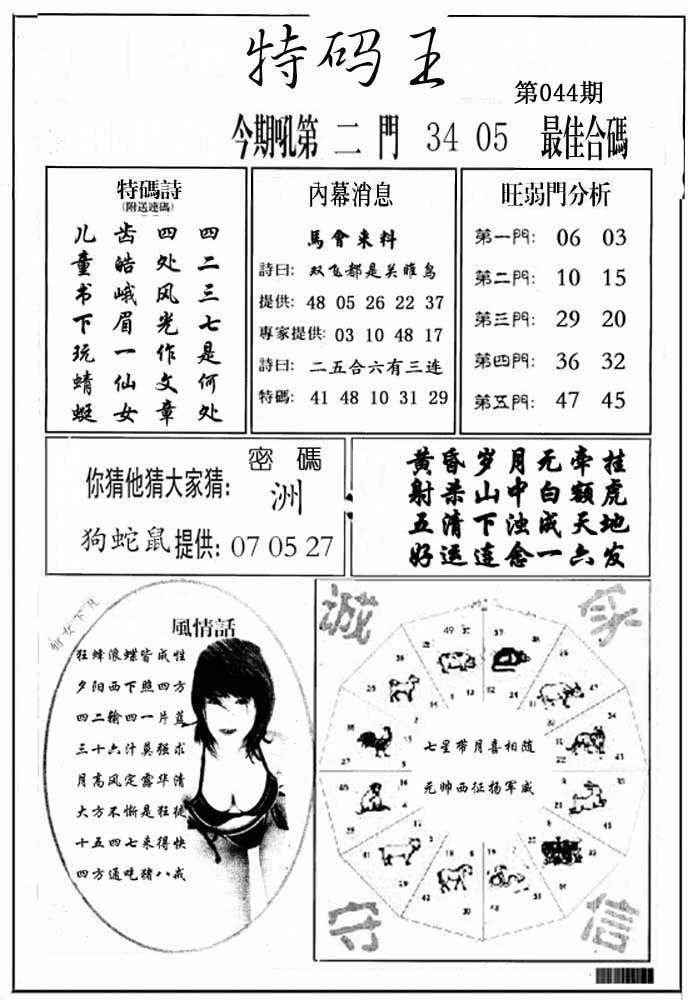 特码王
第044期
今期吼第 二 門 34 05 最佳合碼
特碼詩
(附送連碼)
儿童书下玩蜻蜓
齿皓峨眉一仙女
四处风光作文章
四二三七是何处
內幕消息
馬會来料
詩曰: 双飞都是关雎鸟
提供: 48 05 26 22 37
專家提供: 03 10 48 17
詩曰: 二五合六有三连
特碼: 41 48 10 31 29
旺弱門分析
第一門: 06 03
第二門: 10 15
第三門: 29 20
第四門: 36 32
第五門: 47 45
密碼
你猜他猜大家猜: 洲
狗蛇鼠提供: 07 05 27
黄昏岁月无牵挂
射杀山中白额虎
五清下浊成天地
好运连念一六发
风情話
狂蜂浪蝶皆成性
夕阳西下照四方
四二输四一片蓝
三十六计莫强求
月高风定露华清
大方不惭是狂徒
十五四七来得快
四方通吃猪八戒
诚
家
七星带月喜相随
元帅西征扬军威
守
信